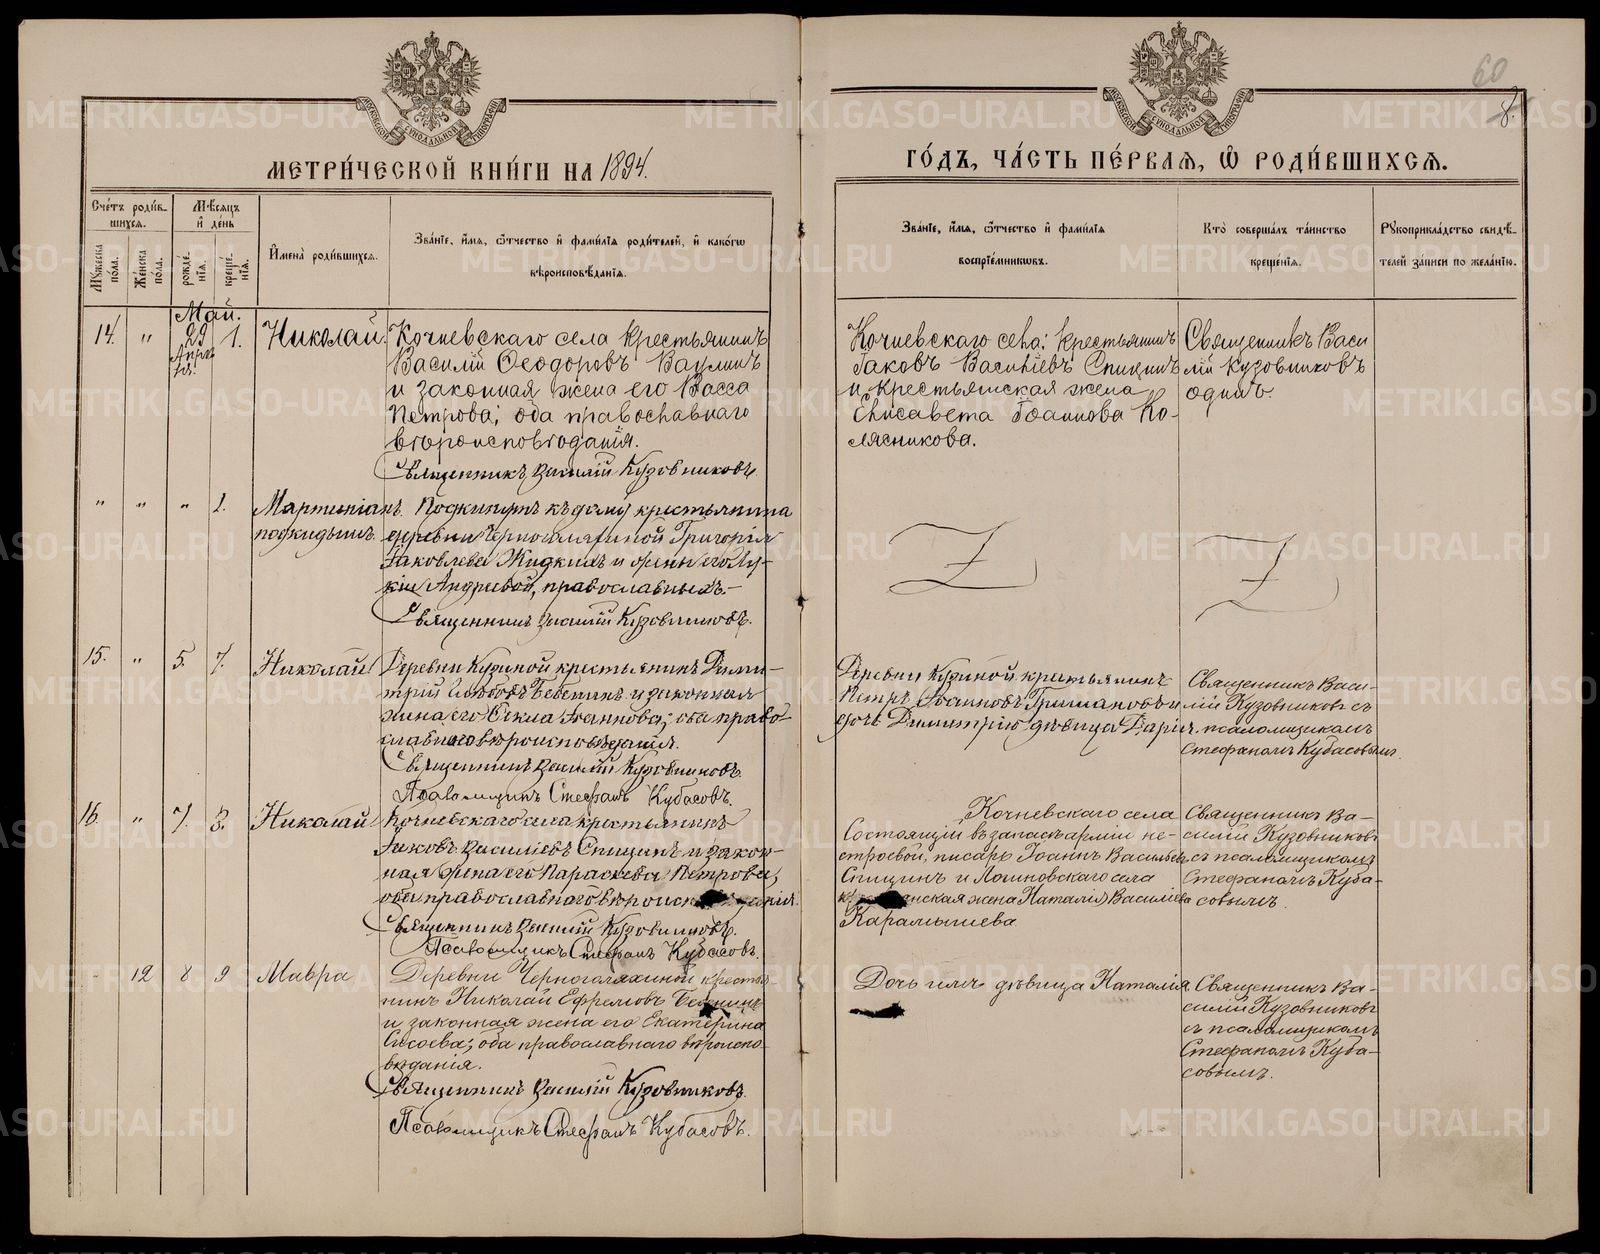 60
8.
МЕТРИ́ЧЕСКОЙ КНИ́ГИ НА 1894.
ГО́ДЪ, ЧА́СТЬ ПЕ́РВАЯ, Ѿ РОДИ́ВШИХСѦ.
Сче́тъ роди́в-
шихсѧ.
Мѣ́сѧцъ
и҆ де́нь
Мꙋ́жеска
пола.
Же́нска
пола.
рожде́-
нїѧ.
креще́-
нїѧ.
И҆мена̀ роди́вшихсѧ.
Зва́нїе, и҆́мѧ, ѻ҆́тчество и҆ фами́лїѧ роди́телей, и҆ како́гѡ
вѣроисповѣ́данїѧ.
Зва́нїе, и҆́мѧ, ѻ҆́тчество и҆ фами́лїѧ
воспрїе́мникѡвъ.
Кто̀ соверша́лъ та́инство
креще́нїѧ.
Рꙋкоприкла́дство свидѣ́-
телей за́писи по жела́нїю.
Май.
14. " 29 Апрѣля 1. Николай.
Кочневскаго села крестьянинъ
Василій Ѳеодоровъ Ваулинъ
и законная жена его Васса
Петрова; оба православнаго
вѣроисповѣданія.
Священникъ Василій Кузовниковъ.
Кочневскаго села: крестьянинъ
Іаковъ Васильевъ Спицинъ
и крестьянская жена
Елисавета Іоаннова Ко-
лясникова.
Священникъ Васи
лій Кузовниковъ
одинъ.
" " " 1. Мартиніанъ.
подкидышъ.
Подкинутъ къ дому крестьянина
деревни Черноголяхиной Григорія
Іаковлева Жидкихъ и жены его Лу-
кіи Андреевой, православныхъ.-
Священникъ Василій Кузовниковъ.
15. " 5. 7. Николай
Деревни Кузиной крестьянинъ Дими-
трій
и законная
жена его Ѳекла Іоаннова; оба право-
славнаго вѣроисповѣданія.
Священникъ Василій Кузовниковъ.
Псаломщикъ Стефанъ Кубасовъ.
Деревни Кузиной крестьянинъ
Петръ Іоанновъ и
дочь Димитрію дѣвица Дарія.
Священникъ Васи-
лій Кузовниковъ съ
псаломщикомъ
Стефаномъ Кубасовымъ.
16. " 7. 8. Николай
Кочневскаго села крестьянинъ
Іаковъ Васильевъ Спицинъ и закон-
ная жена его Параскева Петрова,
оба православнаго
Священникъ Василій Кузовниковъ.
Псаломщикъ Стефанъ Кубасовъ.
Кочневскаго села
Состоящій въ запасѣ арміи не-
строевой, писарь Іоаннъ Васильевъ
Спицинъ и села
жена Наталія Василіева
Карамышева
Священникъ Ва-
силій Кузовниковъ
съ псаломщикомъ
Стефаномъ Куба-
совымъ.
- 12 8 9 Мавра
Деревни Черноголяхиной крестья-
нинъ Николай Ефремовъ
и законная жена его Екатерина
Сысоева; оба православнаго вѣроиспо-
вѣданія.
Священникъ Василій Кузовниковъ.
Псаломщикъ Стефанъ Кубасовъ.
Дочь ихъ дѣвица Наталія
Священникъ Ва-
силій Кузовниковъ
съ псаломщикомъ
Стефаномъ Куба-
совымъ.
METRIKI.GASO-URAL.RU